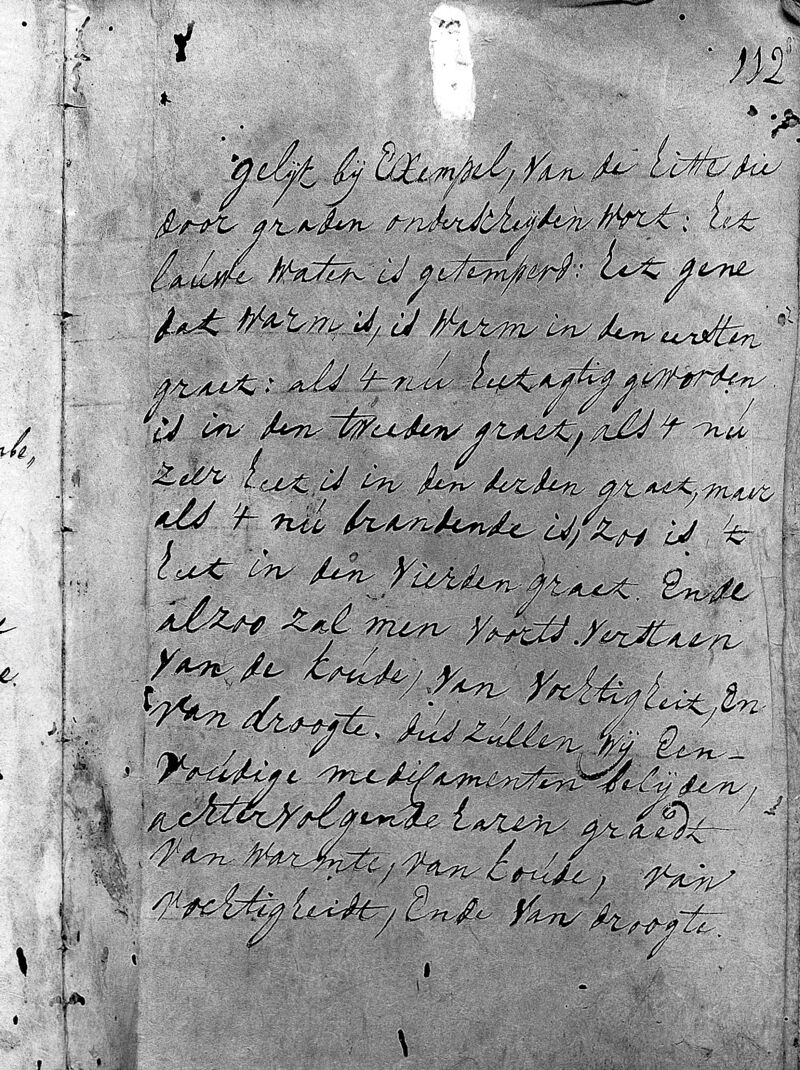 112
gelijk bij Exempel, van de hitte die
door graden onderscheyden wort: het
lauwe water is getemperd: het gene
dat warm is, is warm in den eersten
graet: als 't nú heetagtig geworden
is in den tweeden graet, als 't nú
zeer heet is in den derden graet, maer
als 't nú brandende is, zoo is 't
heet in den vierden graet. Ende
alzoo zal men voorts verstaen
van de koúde, van vochtigheit, en
van droogte. dús zúllen wij een-
voúdige medicamenten belijden,
achtervolgende haren graedt
van warmte, van koúde, van
vochtigheidt, Ende van droogte.